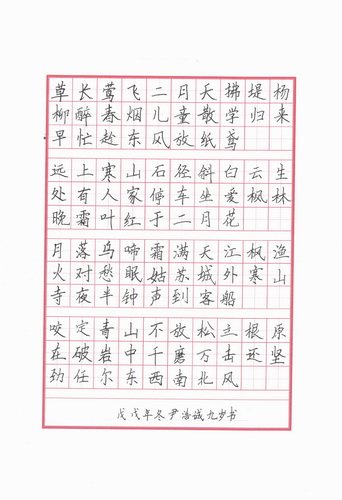 草长莺飞二月天拂堤杨
柳醉春烟儿童散学归来
早忙趁东风放纸鸢
远上寒山石径斜白云生
处有人家停车坐爱枫林
晚霜叶红于二月花
月落乌啼霜满天江枫渔
火对愁眠姑苏城外寒山
寺夜半钟声到客船
咬定青山不放松立根原
在破岩中千磨万击还坚
劲任尔东西南北风
戊戌年冬尹浩诚九岁书